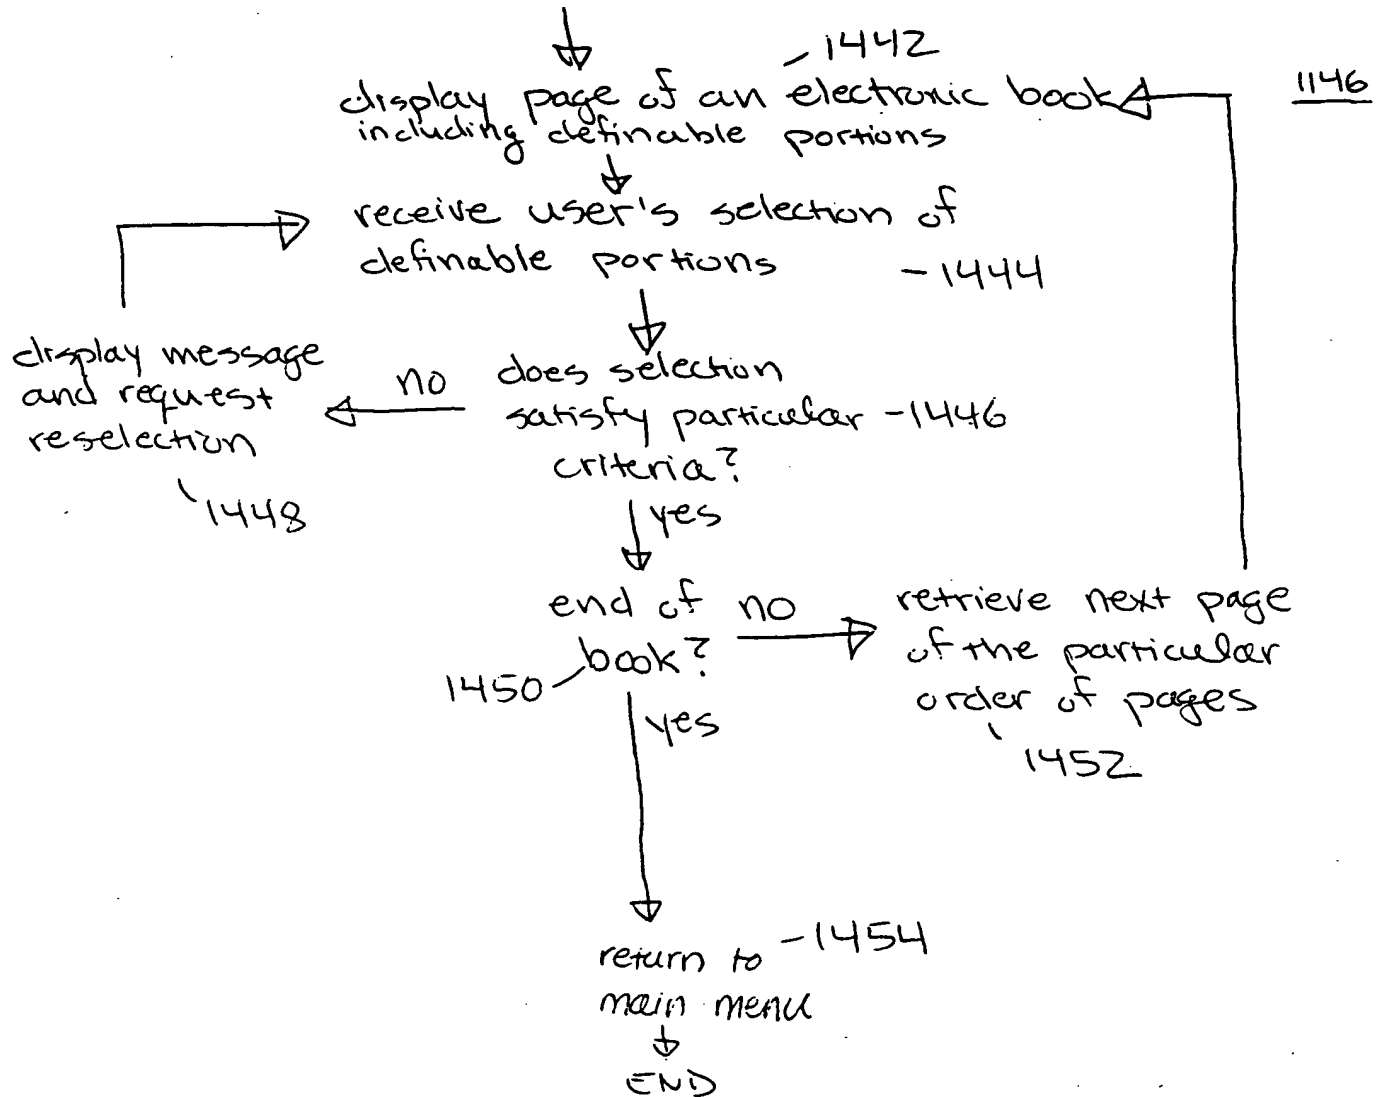 1442
1146
display page of an electronic book
including definable portions
receive user's selection of
definable portions -1444
display message
and request
reselection
1448
no
does selection
satisfy particular -1446
criteria?
yes
end of
book?
1450
no
retrieve next page
of the particular
order of pages
1452
yes
return to -1454
main menu
END